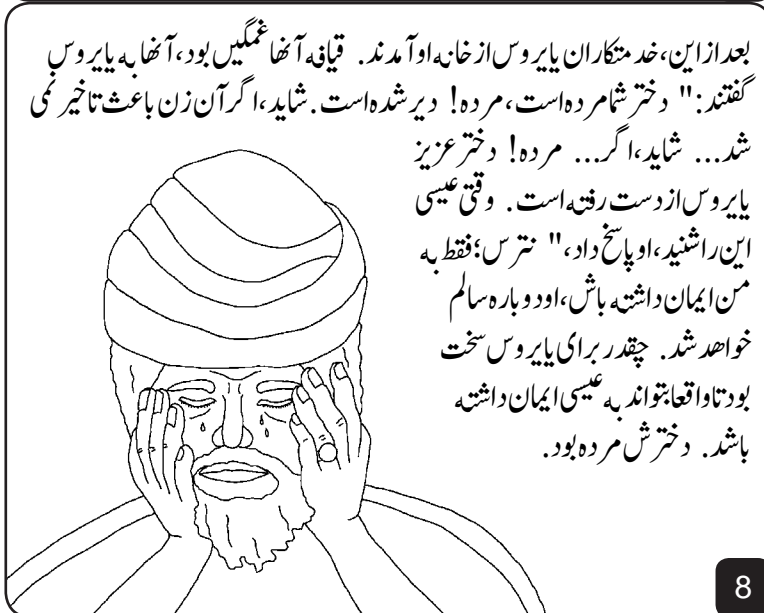 بعد از این، خدمتکاران یایروس از خانه او آمدند. قیافه آنها غمگین بود، آنها به یایروس
گفتند: " دختر شما مرده است، مرده! دیر شده است. شاید، اگر آن زن باعث تاخیر نمی
شد... شاید، اگر... مرده! دختر عزیز
یایروس از دست رفته است. وقتی عیسی
این را شنید، او پاسخ داد، " نترس؛ فقط به
من ایمان داشته باش، او دوباره سالم
خواهد شد. چقدر برای یایروس سخت
بود تا واقعا بتواند به عیسی ایمان داشته
باشد. دخترش مرده بود.
8